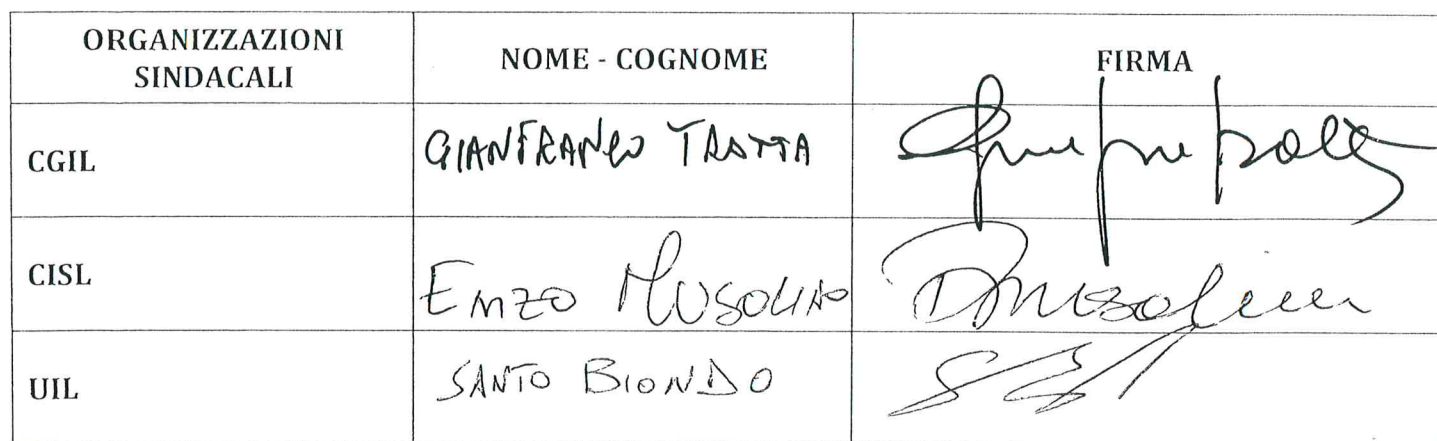 ORGANIZZAZIONI
SINDACALI
NOME - COGNOME
FIRMA
CGIL
GIANFRANCO TROTTA
CISL
ENZO MUSOLINO
UIL
SANTO BIONDO